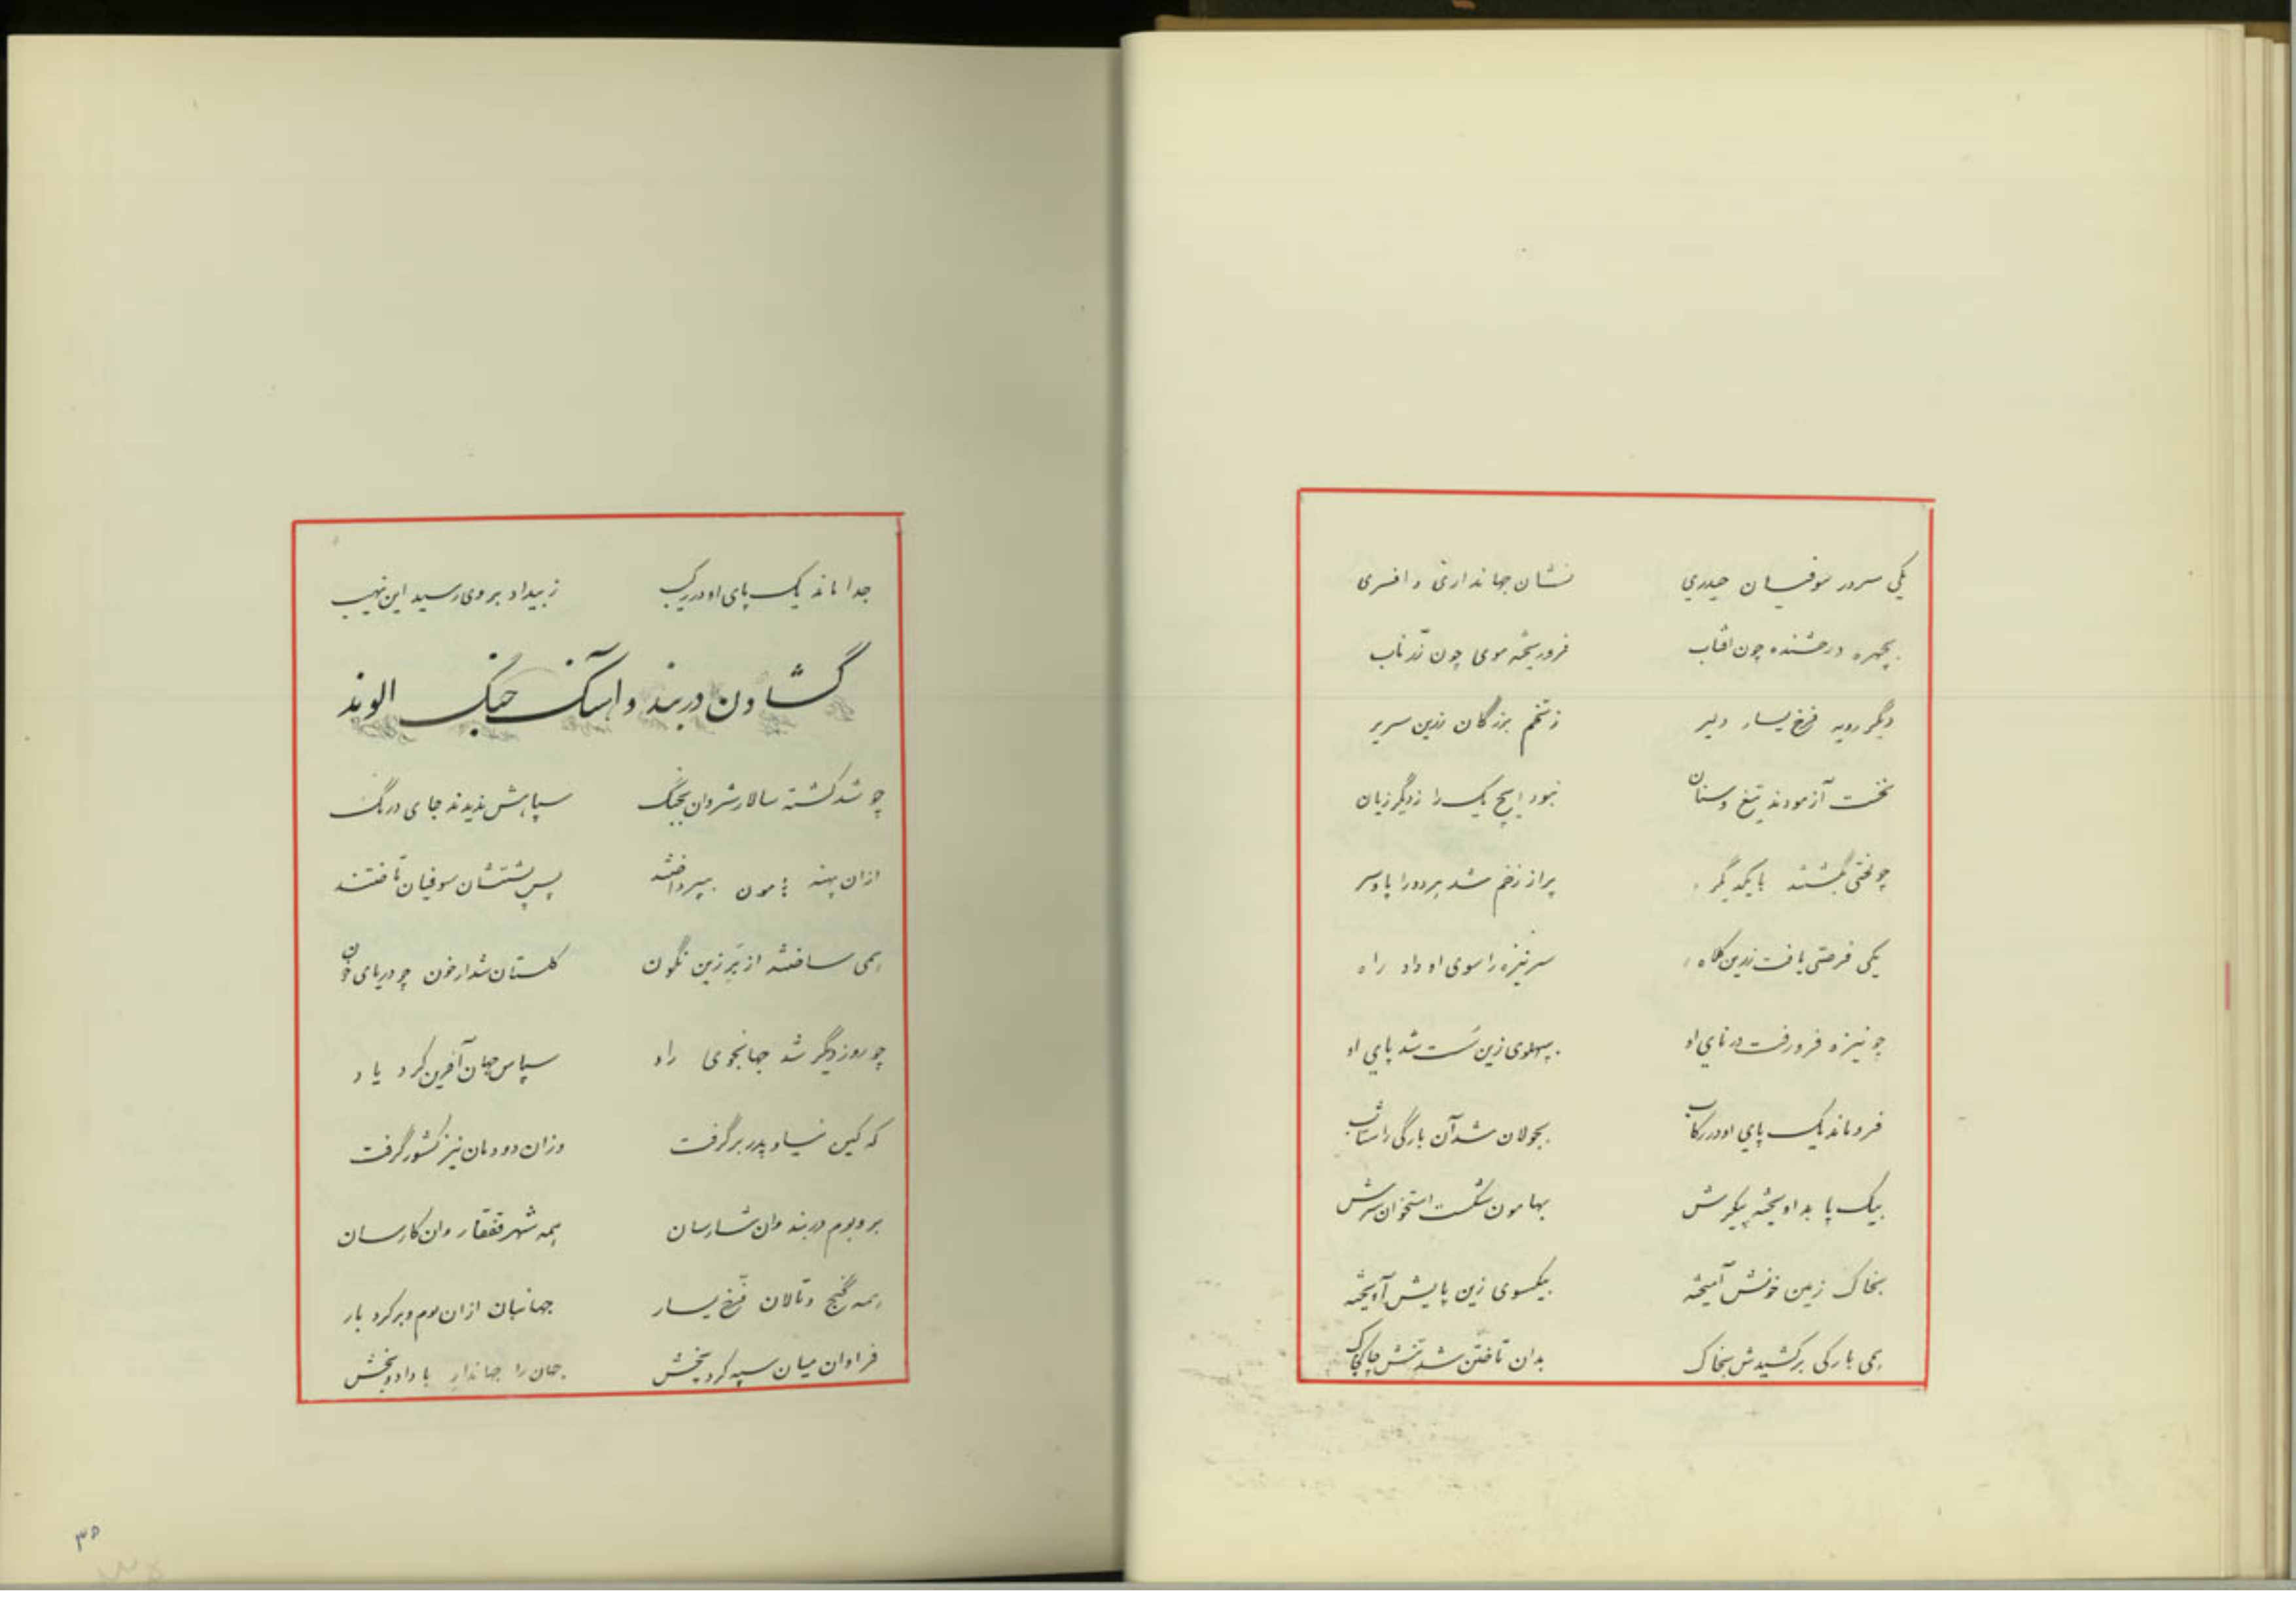 یکی سرور صوفیان حیدری نشان جهانداری و افسری
بچهره درخشنده چون افتاب فروریخته موی چون زر ناب
دیگر رویه فرخ یسار دلیر ز تخم بزرگان زرین سریر
نخست آزمودند تیغ و سنان نبود ایچ یک را ز دیگر زیان
چو لختی بگشتند با یکدیگر پر از زخم شد هر دو را پا و سر
یکی فرصتی یافت زرین کلاه سر نیزه را سوی او داد راه
چو نیزه فرو رفت در نای او بپهلوی زین سست شد پای او
فرو ماند یک پای او در رکاب بجولان شد آن بارگی را شتاب
بیک پا بد اویخته پیکرش بهامون شکست استخوان سرش
بخاک زمین خونش آمیخته بیکسوی زین پایش آویخته
همی بارکی برکشیدش بخاک بدان تاختن شد تنش چاکچاک
جدا ماند یک پای او در رکیب ز بیداد بر وی رسید این نهیب
گشادن دربند و آهنگ جنگ الوند
چو شد کشته سالار شروان بجنگ سپاهش ندیدند جای درنگ
ازان پهنه هامون بپرداختند پس پشتشان صوفیان تاختند
همی ساختند از بر زین نگون کلستان شد از خون چو دریای خون
چو روز دیگر شد جهانجوی راد سپاس جهان آفرین کرد یاد
که کین نیا و پدر بر گرفت وزان دودمان نیز کشور گرفت
بر و بوم دربند وان شارسان همه شهر قفقاز وان کارسان
همه گنج و تالان فرخ یسار جهانبان ازان بوم و بر کرد بار
فراوان میان سپه کرد بخش جهان را جهاندار با داد و بخش
۳۵